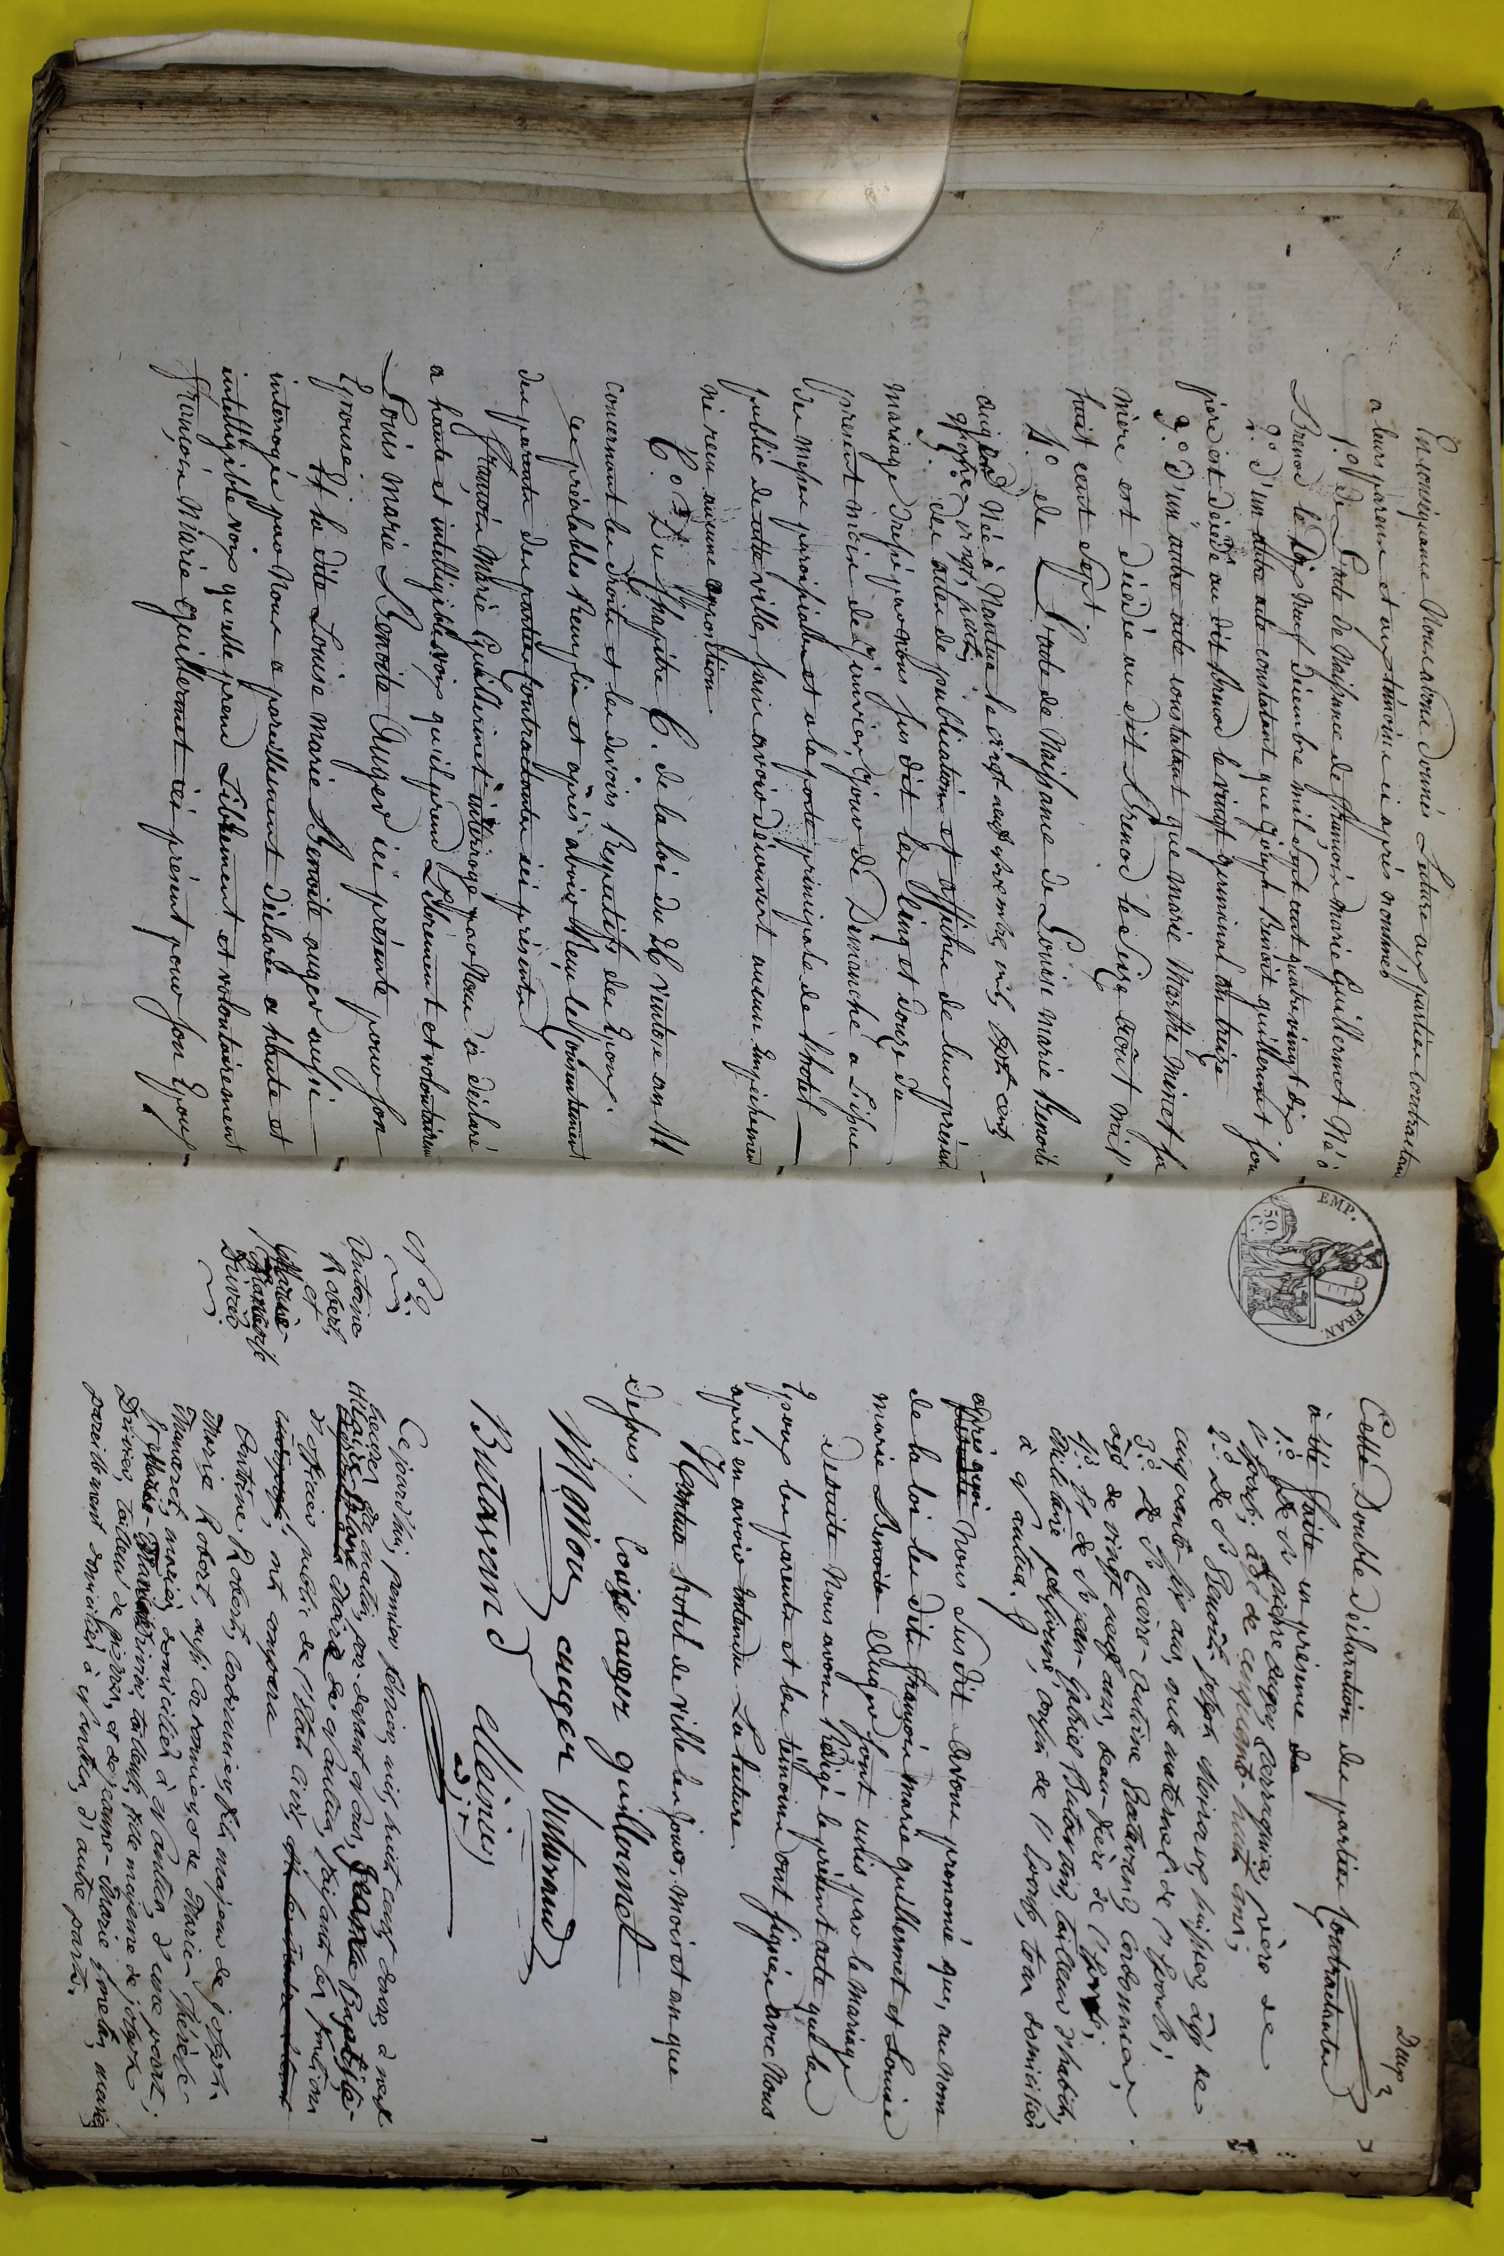 En conséquence Nous avons donnés Lecture aux parties contractan
a leurs parens et aux témoins ci après nommés
1.º de L'acte de Naissance de françois marie Guillermet Né à
Brenod le dix neuf Décembre mil Sept cent quatre vingt dix
2.º d'un autre acte constatant que Joseph Benoit guillermet son
père est décédé au dit Brenod le vingt germinal an treize
3.º d'un autre acte constatant que marie Marthe minet sa
mère est décédée au dit Brenod le Six août mil
huit cent Sept
4.º de L'acte de Naissance de Louise marie Benoite
auger Née à Nantua le vingt neuf novembre mil sept cent
quatre vingt
5.º des actes de publications et affiches de leur présent
mariage par nous sus dit les cinq et douze du
présent mois de Janvier, jour de Dimanche a L'issue
des messes paroissiales et a la porte principale de l'hotel
public de cette ville, sans avoir découvert aucun Empêchemen
ne reçu aucune opposition
6.º Du Chapitre 6. de la loi du 26 Ventose an 11
concernant les droits et les devoirs Respectifs des Epoux
ces préalables Remplis et après avoir Reçu le Consentement
des parents des parties Contractantes ici présents
françois Marie Guillermet interrogé par Nous a déclaré
a haute et intelligible voix qu'il prend Librement et volontairem
Louis marie Benoite Auger ici présente pour son
Epouse
Et la dite Louise marie Benoite auger aussi
interrogée par Nous a pareillement déclarée a haute et
intelligible voix qu'elle prend Librement et volontairement
françois Marie guillermet ici présent pour son Epoux
EMP. FRAN.
50 C.
Cette Double déclaration des parties Contractantes
à été faite en présence de
1.º de Sr pierre auger, perruquier, père de
l'épouse, âgé de cinquante-huit ans;
2.º de Sr Benoit joseph âgé de
cinquante six ans, oncle maternel de l'épouse;
3.º de Sr pierre-antoine Butavand, Cordonnier,
âgé de vingt neuf ans, beau-frère de l'épouse;
4.º Et de Sr jean-Gabriel Butavand, tailleur d'habits,
militaire réformé, cousin de l'épouse, tous domiciliés
à Nantua.
après quoi Nous Sus dit avons prononcé que, au nom
de la loi les dits françois marie guillermet et Louise
marie Benoite Auger Sont unis par le mariage
desuite Nous avons Rédigé le présent acte que les
Epoux les parents et les témoins ont Signés avec Nous
après en avoir entendu La lecture.
Nantua hotel de ville les jour, mois et an que
dessus./. Louise auger guillermet
auger Butavand
Butavand
adj.t
N.º 2
Antoine
Robert,
et
Marie-
françoise
Ce jourd'hui, premier février, mil huit cent douze, à neuf
heures du matin, par devant Nous, Jean Baptiste-
Hilaire Maire de Nantua, faisant les fonctions
d'officier public de l'état civil,
ont comparu
Antoine Robert, Cordonnier, fils majeur de joseph-
Marie Robert, aussi Cordonnier, et de Marie-Thérèse
mariés, domiciliés à Nantua, d'une part;
Et Marie-françoise tailleuse, fille majeure de joseph
tailleur de pierres, et de jeanne-Marie mariés,
pareillement domiciliés à Nantua, d'autre part.